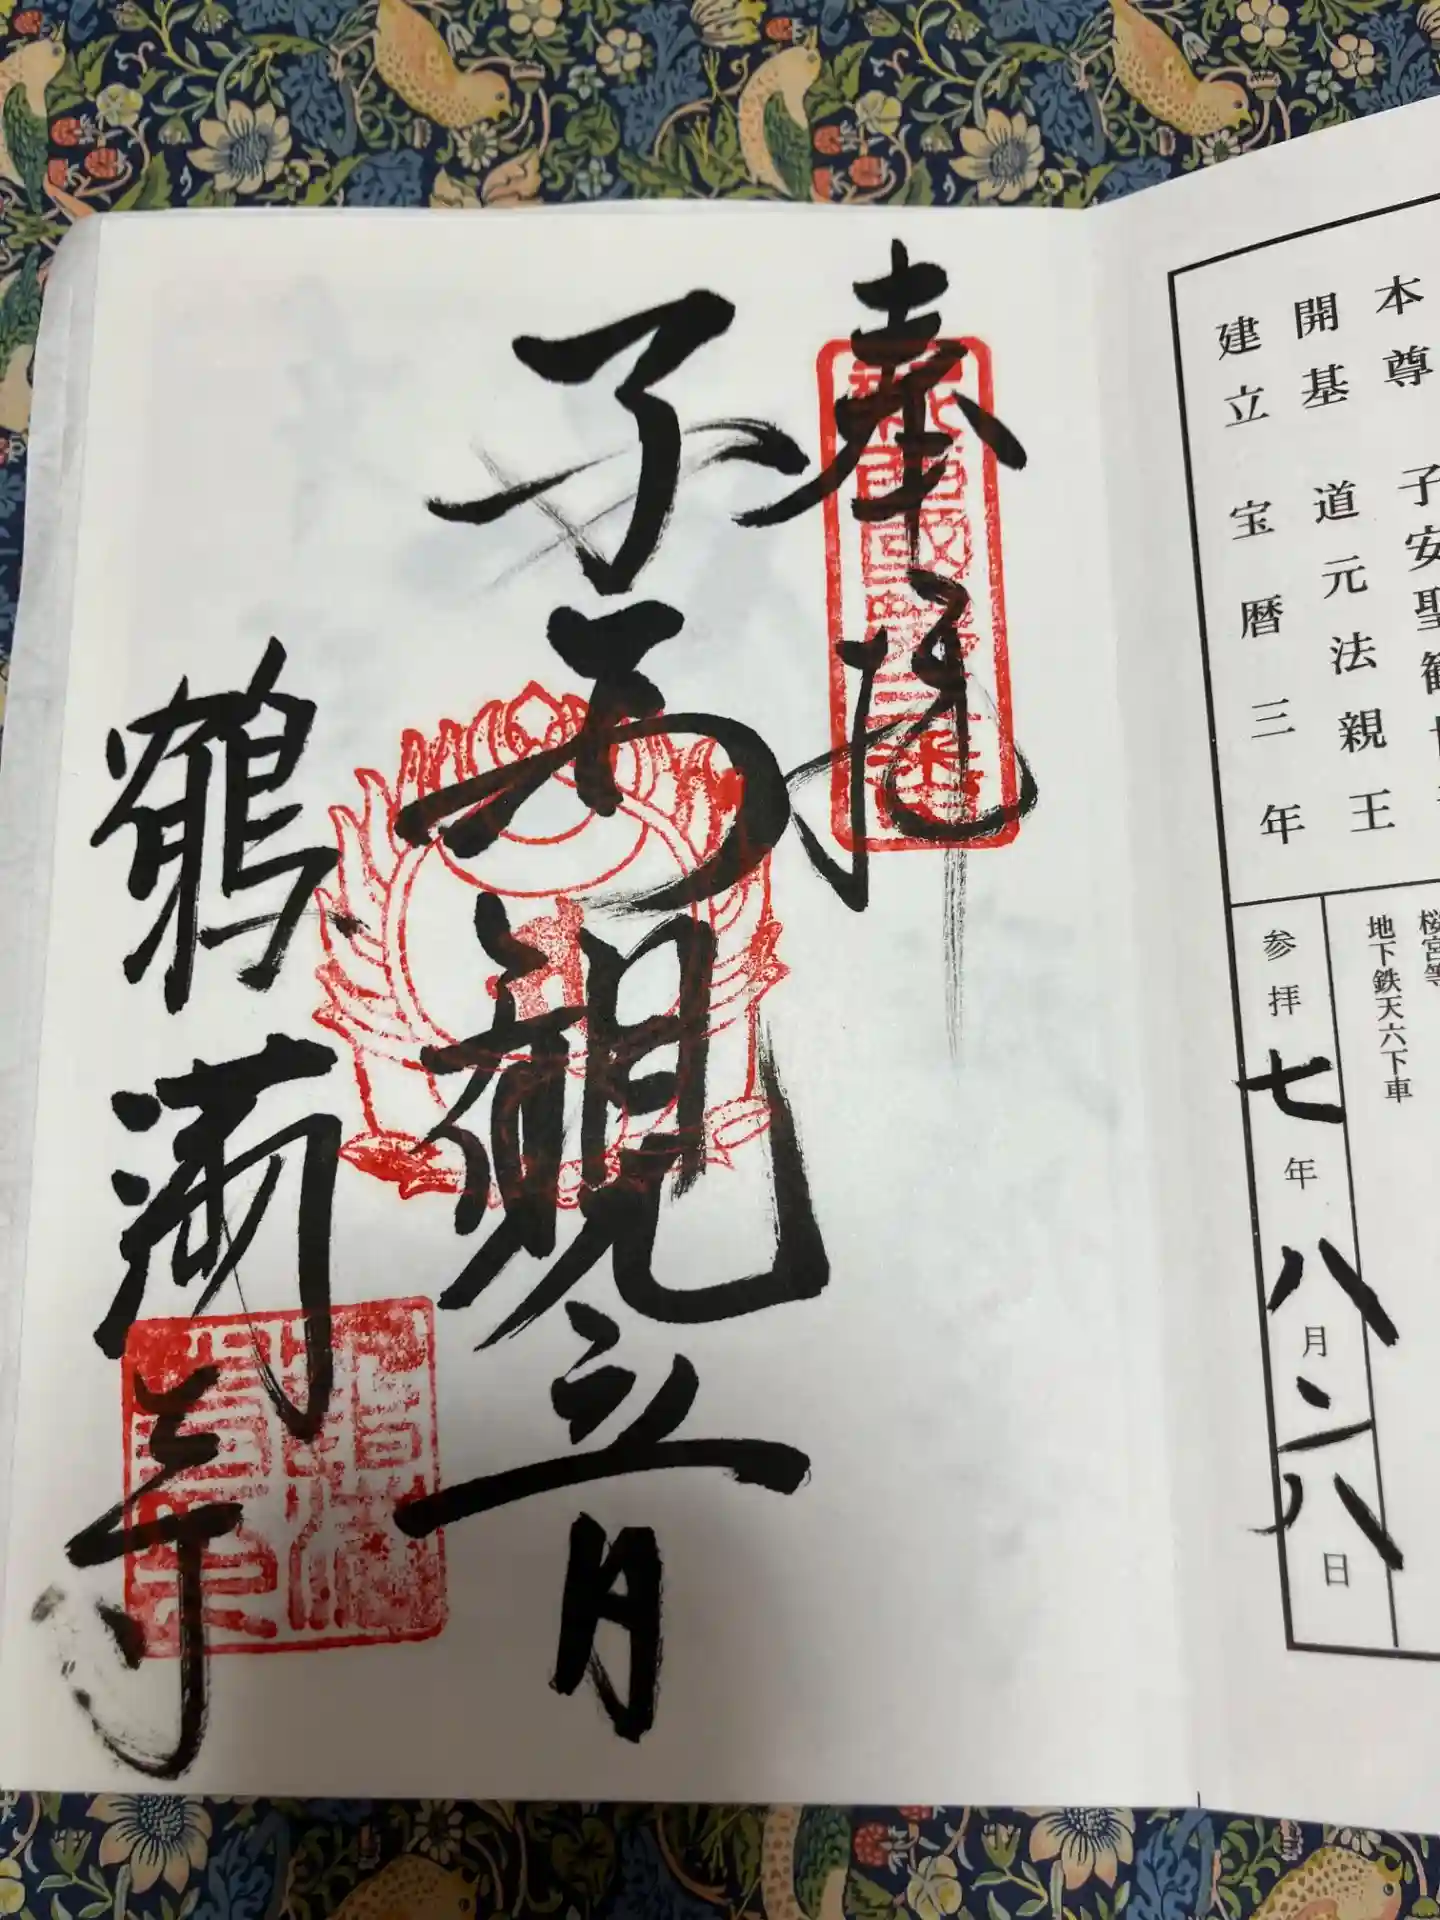 本尊 子安聖観世
開基 道元法親王
建立 宝暦三年
桜宮等
地下鉄天六下車
参拝七年八月二八日
奉拝
子安観音
鶴満寺